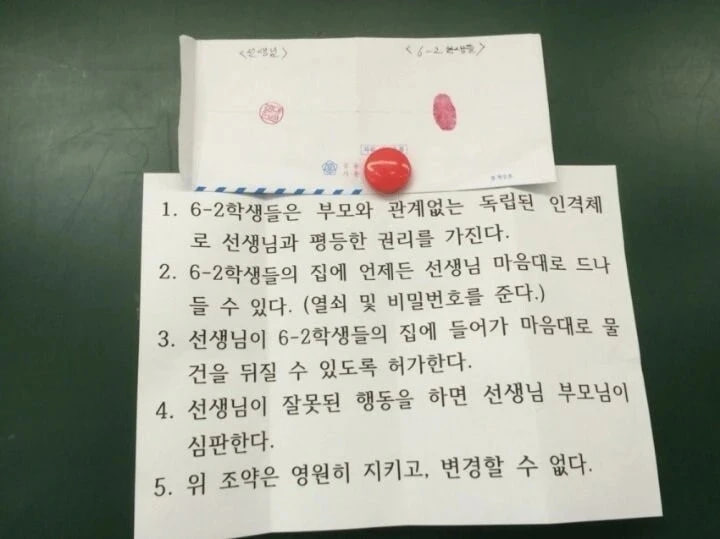 <선생님>
<6-2 학생들>
1. 6-2학생들은 부모와 관계없는 독립된 인격체
로 선생님과 평등한 권리를 가진다.
2. 6-2학생들의 집에 언제든 선생님 마음대로 드나
들 수 있다. (열쇠 및 비밀번호를 준다.)
3. 선생님이 6-2학생들의 집에 들어가 마음대로 물
건을 뒤질 수 있도록 허가한다.
4. 선생님이 잘못된 행동을 하면 선생님 부모님이
심판한다.
5. 위 조약은 영원히 지키고, 변경할 수 없다.